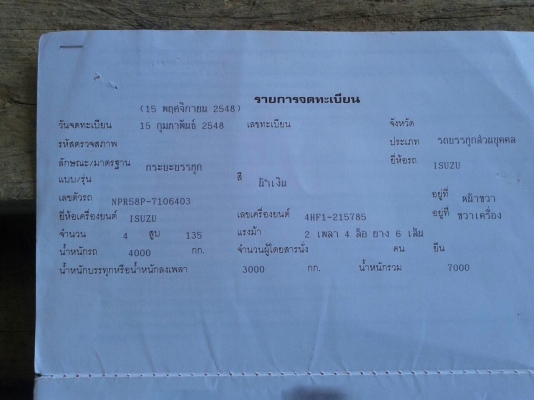 รายการจดทะเบียน
(15 พฤศจิกายน 2548)
วันจดทะเบียน 15 กุมภาพันธ์ 2548 เลขทะเบียน จังหวัด
รหัสตรวจสภาพ ประเภท รถบรรทุกส่วนบุคคล
ลักษณะ/มาตรฐาน กระบะบรรทุก ยี่ห้อรถ ISUZU
แบบ/รุ่น สี น้ำเงิน
เลขตัวรถ NPR58P-7106403 อยู่ที่ หน้าขวา
ยี่ห้อเครื่องยนต์ ISUZU เลขเครื่องยนต์ 4HF1-215785 อยู่ที่ ขวาเครื่อง
จำนวน 4 สูบ 135 แรงม้า 2 เพลา 4 ล้อ ยาง 6 เส้น
น้ำหนักรถ 4000 กก. จำนวนผู้โดยสารนั่ง คน ยืน
น้ำหนักบรรทุกหรือน้ำหนักลงเพลา 3000 กก. น้ำหนักรวม 7000